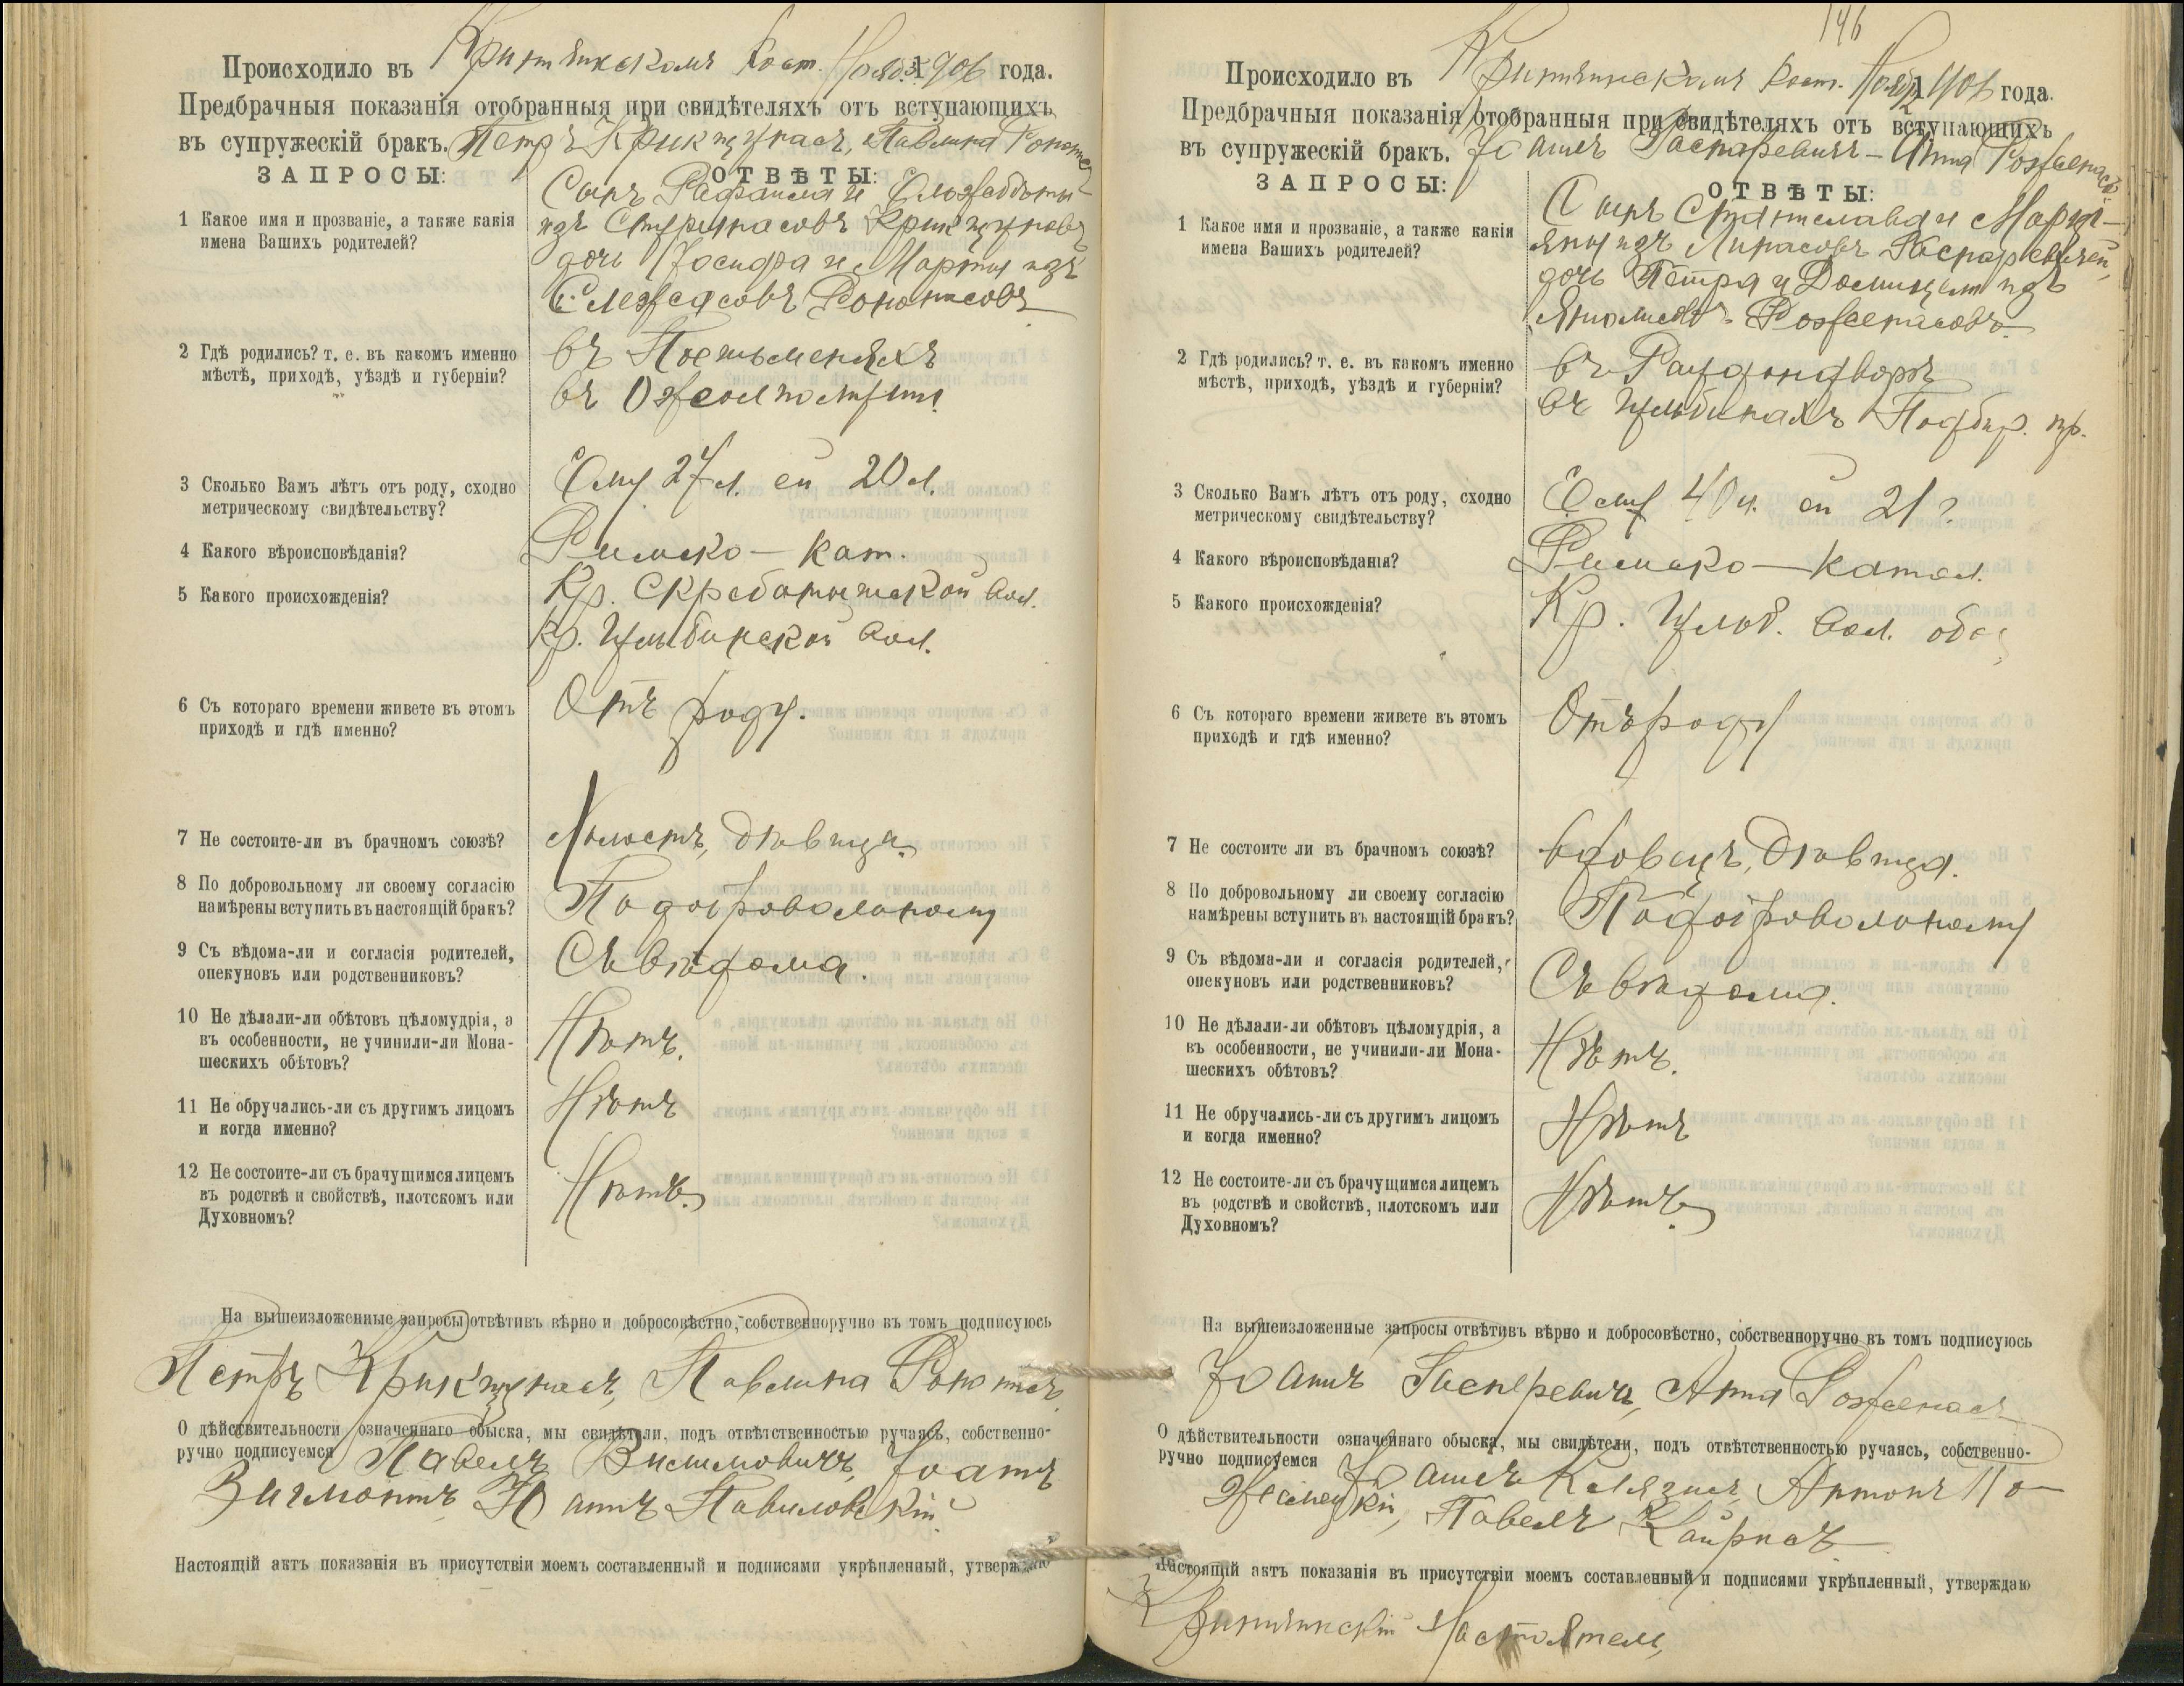 Происходило въ Кринчинскомъ Кост. Нояб. 1906 года.
Предбрачныя показанія отобранныя при свидѣтеляхъ отъ вступающихъ
въ супружескій бракъ. Петръ Крикщунасъ, Павлина
ЗАПРОСЫ:
ОТВѢТЫ:
1 Какое имя и прозваніе, а также какія
имена Вашихъ родителей?
Сынъ Рафаила и Ельжбеты
изъ Крикщуновъ
дочь Іосифа и Марты изъ
2 Гдѣ родились? т. е. въ какомъ именно
мѣстѣ, приходѣ, уѣздѣ и губерніи?
въ
въ
3 Сколько Вамъ лѣтъ отъ роду, сходно
метрическому свидѣтельству?
Ему 27 л. ей 20 л.
4 Какого вѣроисповѣданія?
Римско-кат.
5 Какого происхожденія?
Кр. Скреботышской вол.
Кр. Цыбинской вол.
6 Съ котораго времени живете въ этомъ
приходѣ и гдѣ именно?
Отъ роду.
7 Не состоите-ли въ брачномъ союзѣ?
Холостъ, дѣвица.
8 По добровольному ли своему согласію
намѣрены вступить въ настоящій бракъ?
По добровольному
9 Съ вѣдома-ли и согласія родителей,
опекуновъ или родственниковъ?
Съ вѣдома.
10 Не дѣлали-ли обѣтовъ цѣломудрія, а
въ особенности, не учинили-ли Мона-
шескихъ обѣтовъ?
Нѣтъ.
11 Не обручались-ли съ другимъ лицомъ
и когда именно?
Нѣтъ
12 Не состоите-ли съ брачущимся лицемъ
въ родствѣ и свойствѣ, плотскомъ или
Духовномъ?
Нѣтъ.
На вышеизложенные запросы отвѣтивъ вѣрно и добросовѣстно, собственноручно въ томъ подписуюсь
Петръ Крикщунасъ, Павлина
О дѣйствительности означеннаго обыска, мы свидѣтели, подъ отвѣтственностью ручаясь, собственно-
ручно подписуемся Павелъ Іоаннъ
Зигмонтъ, Іоаннъ Павиловскій
Настоящій актъ показанія въ присутствіи моемъ составленный и подписями укрѣпленный, утверждаю
146
Происходило въ Кринчинскомъ Кост. Нояб. 1906 года.
Предбрачныя показанія отобранныя при свидѣтеляхъ отъ вступающихъ
въ супружескій бракъ. Іоаннъ Гаспаревичъ – Анна
ЗАПРОСЫ:
ОТВѢТЫ:
1 Какое имя и прозваніе, а также какія
имена Вашихъ родителей?
Сынъ Станислава и Мары-
яны изъ
дочь Петра и Домицели изъ
2 Гдѣ родились? т. е. въ какомъ именно
мѣстѣ, приходѣ, уѣздѣ и губерніи?
въ
въ Подбир. пр.
3 Сколько Вамъ лѣтъ отъ роду, сходно
метрическому свидѣтельству?
Ему 40 л. ей 21 г.
4 Какого вѣроисповѣданія?
Римско-катол.
5 Какого происхожденія?
Кр. вол. оба
6 Съ котораго времени живете въ этомъ
приходѣ и гдѣ именно?
Отъ роду
7 Не состоите ли въ брачномъ союзѣ?
Вдовецъ, дѣвица.
8 По добровольному ли своему согласію
намѣрены вступить въ настоящій бракъ?
По добровольному
9 Съ вѣдома-ли и согласія родителей,
опекуновъ или родственниковъ?
Съ вѣдома.
10 Не дѣлали-ли обѣтовъ цѣломудрія, а
въ особенности, не учинили-ли Мона-
шескихъ обѣтовъ?
Нѣтъ.
11 Не обручались-ли съ другимъ лицомъ
и когда именно?
Нѣтъ
12 Не состоите-ли съ брачущимся лицемъ
въ родствѣ и свойствѣ, плотскомъ или
Духовномъ?
Нѣтъ.
На вышеизложенные запросы отвѣтивъ вѣрно и добросовѣстно, собственноручно въ томъ подписуюсь
Іоаннъ Гасперевичъ, Анна
О дѣйствительности означеннаго обыска, мы свидѣтели, подъ отвѣтственностью ручаясь, собственно-
ручно подписуемся Іоаннъ Антонъ По-
Павелъ Кайрисъ
Настоящій актъ показанія въ присутствіи моемъ составленный и подписями укрѣпленный, утверждаю
Кринчинскій Настоятель,